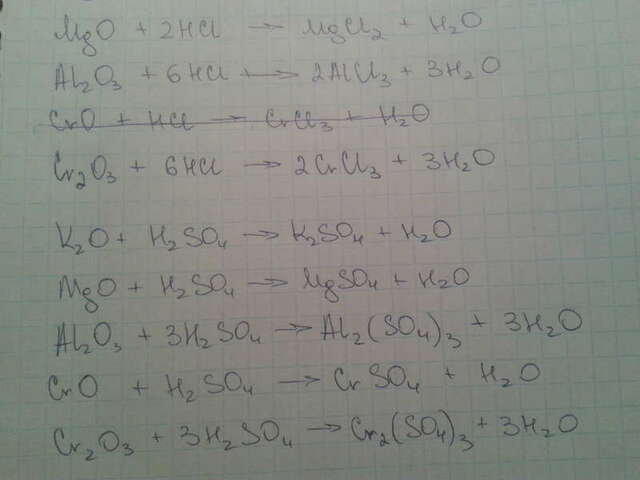 MgO + 2HCl → MgCl₂ + H₂O
Al₂O₃ + 6HCl → 2AlCl₃ + 3H₂O
CrO + HCl → CrCl₃ + H₂O
Cr₂O₃ + 6HCl → 2CrCl₃ + 3H₂O
K₂O + H₂SO₄ → K₂SO₄ + H₂O
MgO + H₂SO₄ → MgSO₄ + H₂O
Al₂O₃ + 3H₂SO₄ → Al₂(SO₄)₃ + 3H₂O
CrO + H₂SO₄ → CrSO₄ + H₂O
Cr₂O₃ + 3H₂SO₄ → Cr₂(SO₄)₃ + 3H₂O